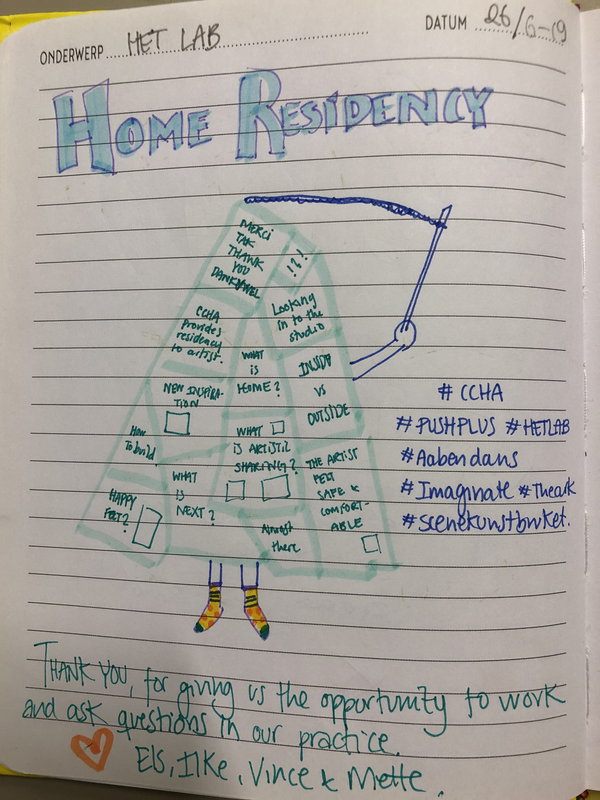 ONDERWERP HET LAB
DATUM 26/6-19
HOME RESIDENCY
MERCI
TAK
THANK
YOU
DANKJEWEL
!?!
CCHA
provides
residency
to artist.
Looking
in to the
studio
WHAT
IS
HOME?
INSIDE
VS
OUTSIDE
NEW INSPIRA-
TION
HOW
To build
WHAT
IS ARTISTIC
SHARING?
THE ARTIST
FELT
SAFE &
COMFORT-
ABLE
WHAT
IS
NEXT?
HAPPY
FEET?
Almost
there
# CCHA
# PUSHPLUS # HETLAB
# Aabendans
# Imaginate # Theark
# scenekunstbruket.
THANK YOU, for giving us the opportunity to work
and ask questions in our practice.
Els, Ilke, Vince & Mette.